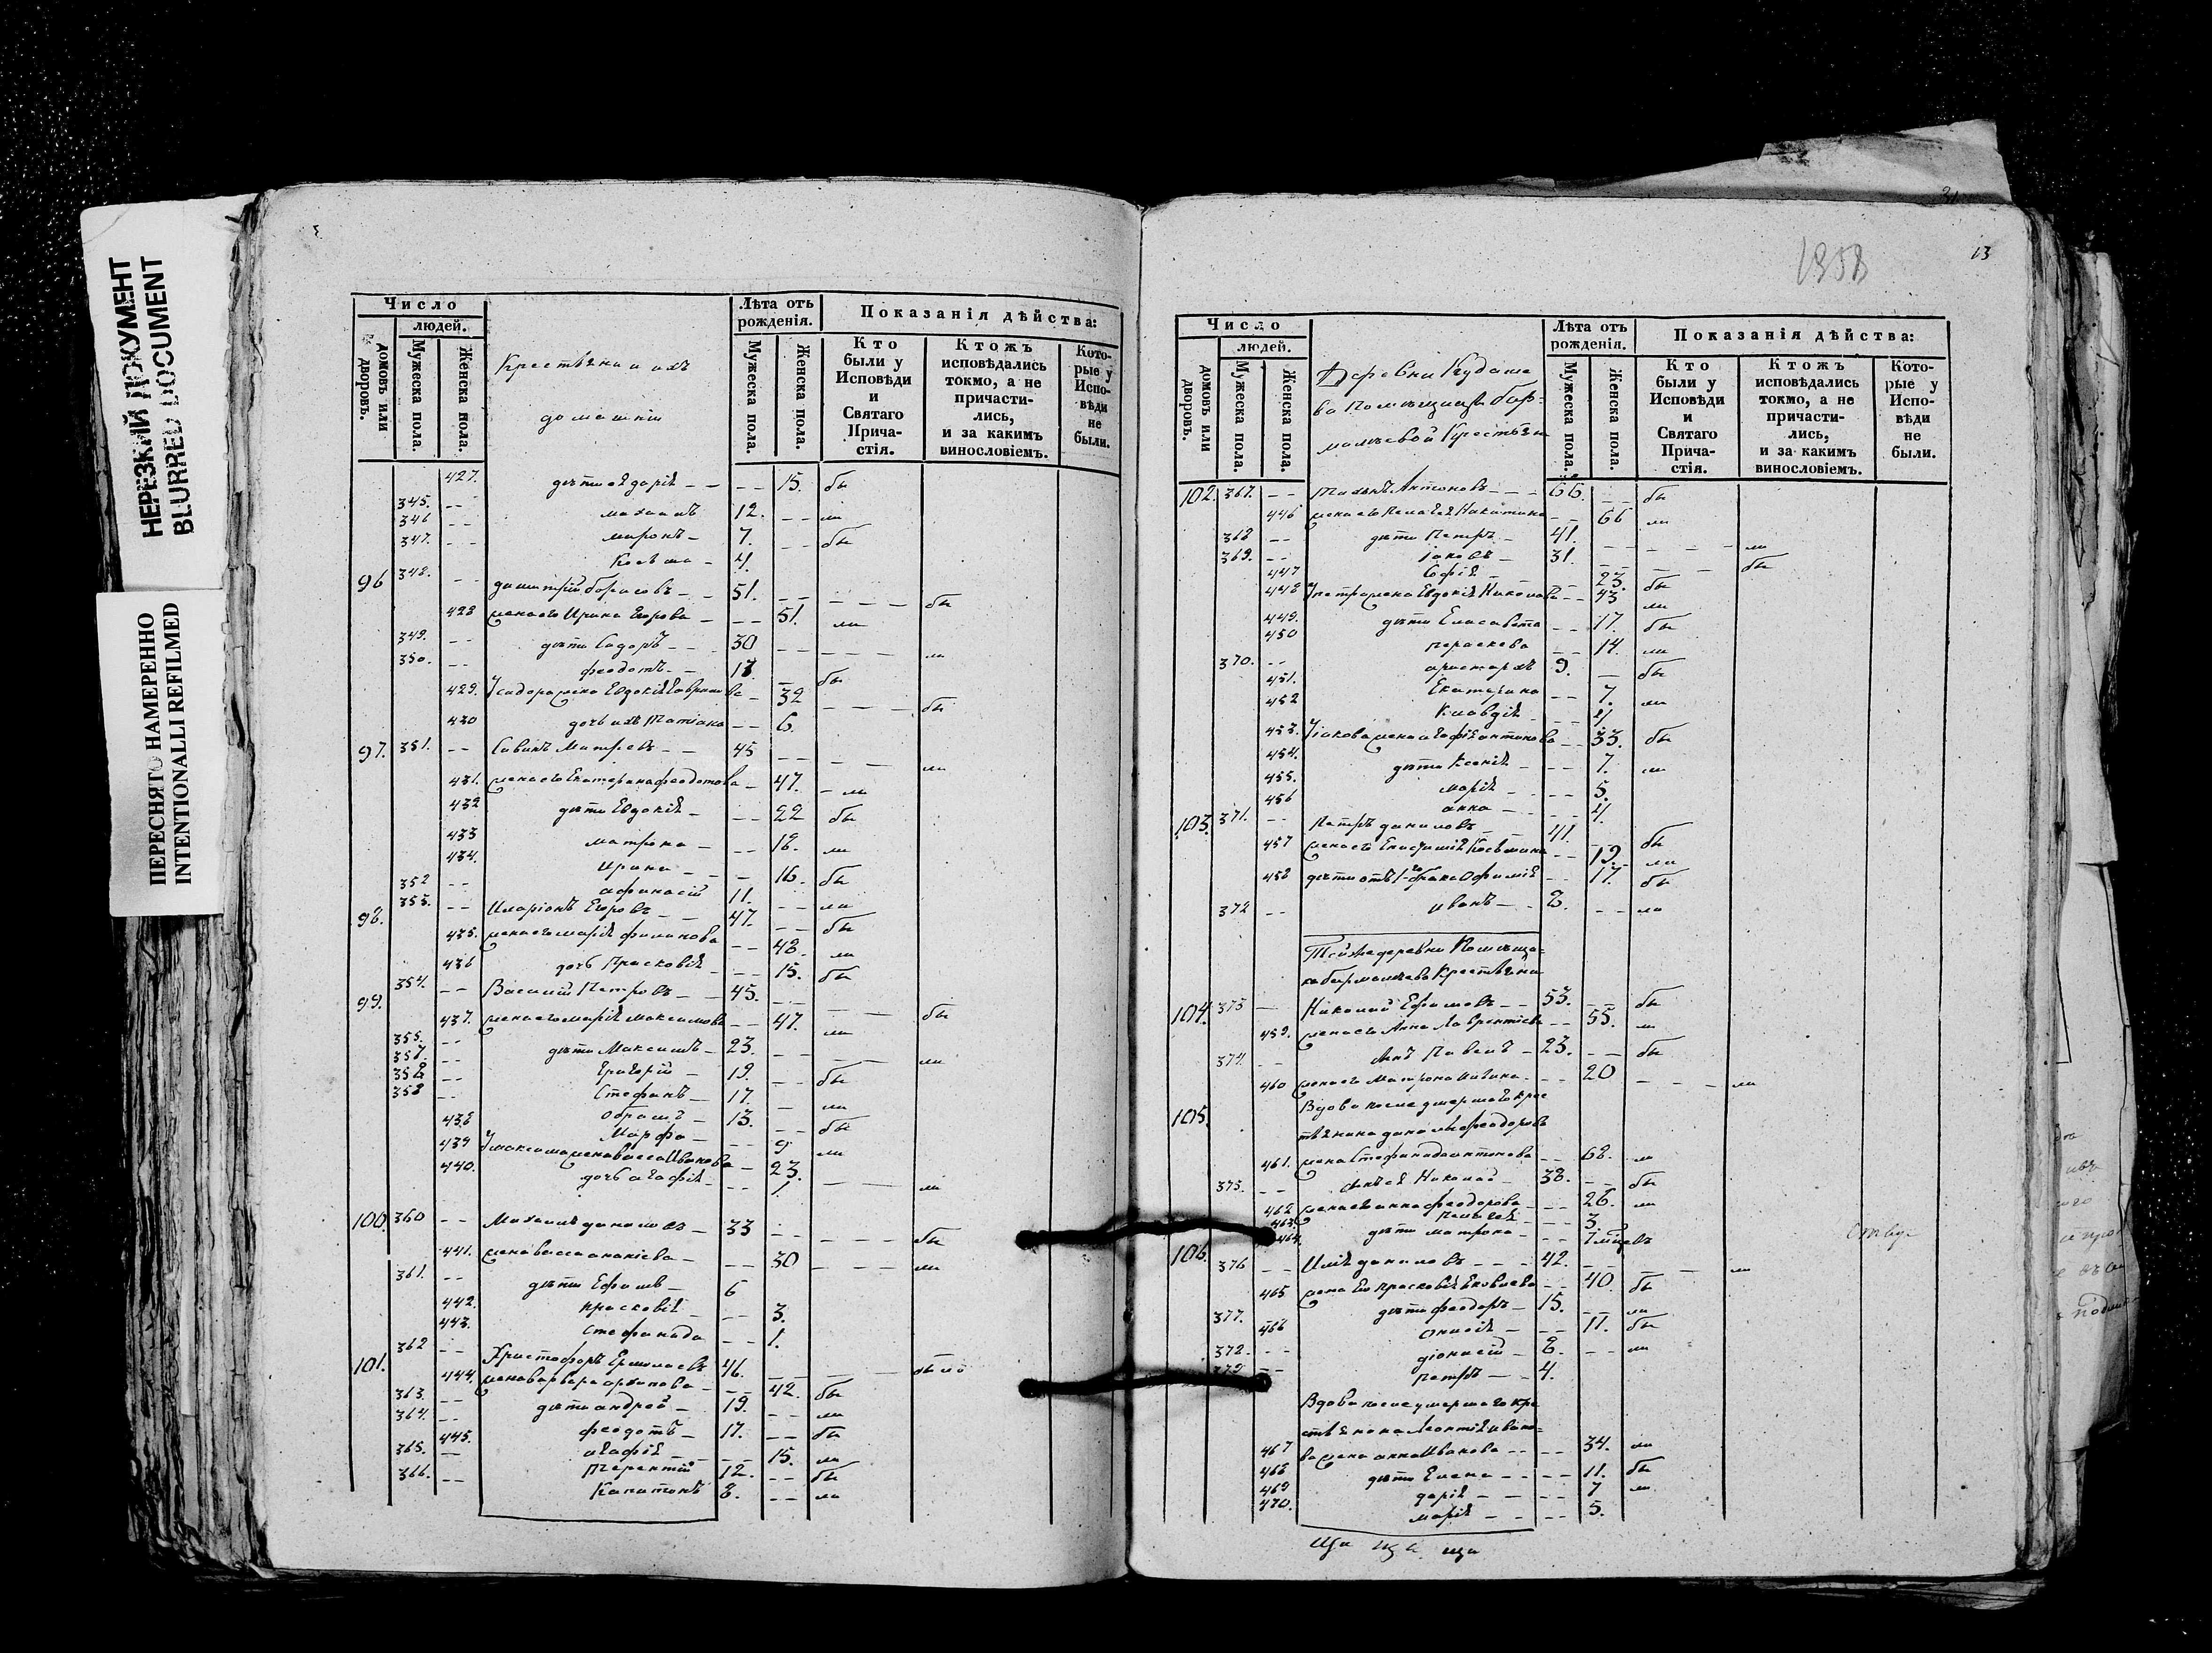 НЕРЕЗКИЙ ДОКУМЕНТ
BLURRED DOCUMENT
ПЕРЕСНЯТО НАМЕРЕННО
INTENTIONALLI REFILMED
Число
людей.
домовъ или дворовъ.
Мужеска пола.
Женска пола.
Крестьяна и ихъ
домашнiи
Лѣта отъ рожденія.
Мужеска пола.
Женска пола.
Показанія дѣйства:
Кто были у Исповѣди и Святаго Причастія.
Ктожъ исповѣдались токмо, а не причастились, и за какимъ винословіемъ.
Которые у Исповѣди не были.
427. дѣти ея дарія – – – – 15. бы
345. – – михаилъ 12. – – ли
346 – – миронъ – 7. – – бы
347. – – Косьма – 4.
96 348. – – димитрій борисовъ – – 51. – – – – – бы
428 жена его Ирина Егорова – – – 51. ли
349. – – дѣти Сидоръ – – 30 – – – – – ли
350. – – феодотъ – – 18. – бы
429. У сидора жена Евдокія – 32 – – – бы
430 дочь ихъ Татіана – – 6.
97. 351. – – Савинъ – – 45 – – – – – ли
431. жена его Екатерина феодотова – 47. – ли
432 дѣти Евдокія – – – 22 бы
433 матрона – – – 18. ли
434. Ирина – – – 16. бы
352 – – афанасій 11. – – ли
98. 353. – – Иларіонъ Егоровъ – – 47. – – бы
435. жена его марія филипова – – 48. ли
436 дочь Прасковія – – – 15. бы
99. 354. – – Василій Петровъ – – 45. – – – – бы
437. жена его марія максимова – – 47. ли
355. – – дѣти Максимъ – 23. – – – – ли
357. – – Григорій – 19. – – бы
358 – – Стефанъ – 17. – ли
358 – – Обрамъ – 13. – – бы
438 Марфа – – – 9 ли
439 У максима жена васса Иванова – 23. – – ли
440. дочь агафія – – – 1.
100 360 – – Михаилъ даниловъ – 33 – – – – – бы
441. жена васса ананіева – – – 30 – – – ли
361. – – дѣти Ефимъ 6
442. прасковія – – – 3.
443. Стефанида – – 1.
101. 362 – – Христофоръ Ермолаевъ 46. – – – – – было
444 жена варвара архипова – – – 42. бы
363. – – дѣти андрей – 19. – – ли
364. – – феодотъ – 17. – – бы
445. агафія – – – 15. ли
365. – – Терентій 12. – – бы
366. – – Капитонъ 8. – – ли
1858
13
Число
людей.
домовъ или дворовъ.
Мужеска пола.
Женска пола.
Деревни Кудаше
ва Помѣщицы бар-
малѣевой Крестьяна
Лѣта отъ рожденія.
Мужеска пола.
Женска пола.
Показанія дѣйства:
Кто были у Исповѣди и Святаго Причастія.
Ктожъ исповѣдались токмо, а не причастились, и за какимъ винословіемъ.
Которые у Исповѣди не были.
102. 367. – – Антоновъ – – – 66. – – бы
446 жена его Пелагея Никитина – – 66 ли
368 – – дѣти Петръ – 41. – – – – – ли
369. – – Іаковъ – 31. – – – – бы
447 Софія – – – 23. бы
448 У петра жена Евдокія – – 43 ли
449. дѣти Елисавета – – 17. бы
450 параскева – – 14. ли
370. – – аристархъ 9. – бы
451. Екатерина – – 7. ли
452 Клавдія – – 4
453. У іакова жена агафія антонова – – 33. бы
454. дѣти Ксенія – – – 7. ли
455. марія – – – – 5.
456 анна – – – 4.
103. 371. – – Петръ даниловъ – – 41. – – бы
457 жена его Косьмина – – 19. ли
458 дѣти отъ 1-го брака Офимія – – 17. бы
372 – – иванъ – – 8. – – ли
Той же деревни Помѣщи-
ка бармалѣева Крестьяна
104. 373 – Николай Ефимовъ – – 53. – – бы
459. жена его Анна Лаврентіева – – 55. ли
374. – – сынъ Павелъ – 23. – – бы
460 жена его Матрона Ильина – – – 20 – – – ли
105. Вдова после умершаго крес
тьянина данилы феодоров
461. жена Стефанида антонова – – 68. ли
375. – – сынъ ея Николай – 38. – – бы
462 жена его анна феодорова – – – 26. ли
463. Пелагея – – – 3.
464. дѣти матрона – – – 7 мѣцевъ
106. 376 – – Илія даниловъ – – – 42. – – – – ли
465 жена его прасковія – – 40. бы
377. дѣти феодоръ – 15. – – ли
466 Онисія – – – 11. бы
378. – – діонисій – 8. – – ли
379 – – петръ – – 4.
Вдова после умершаго кре
стьянина Леонтія ивано-
467 ва жена анна Иванова – – – – 34. ли
468 дѣти Елена – – – – 11. бы
469 дарія – – – – 7 ли
470. марія – – – – 5.